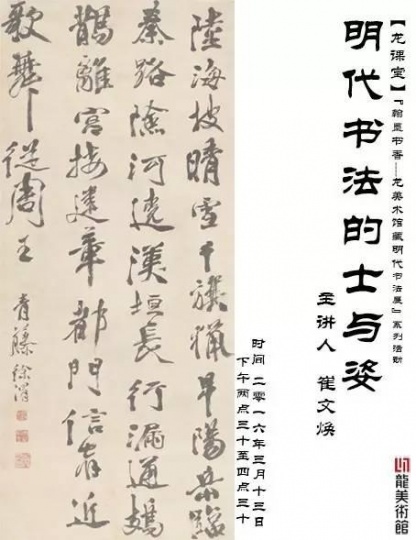 【龙课堂】『翰墨书香——龙美术馆藏明代书法展』系列活动
明代书法的士与姿
主讲人 崔文焕
时间 二零一六年三月十三日
下午两点三十至四点三十
龍美術館
陸海披晴雪千旗獵早陽岳臨
秦路險河遶漢垣長行漏通鳷
鵲離宮接建章都門信宿近
歌舞從周王
青藤徐渭